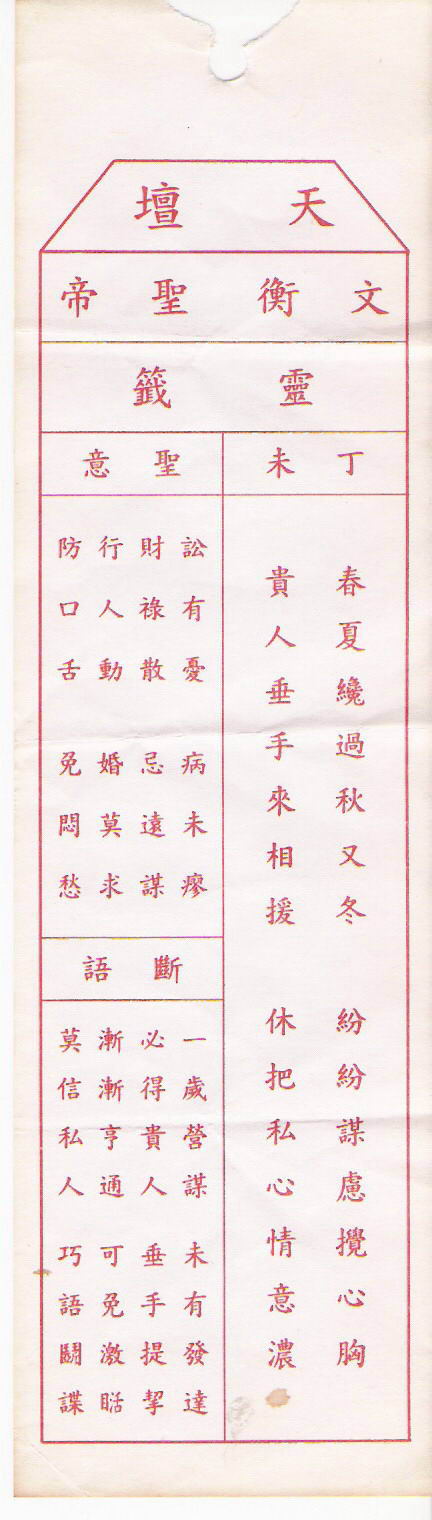 天壇
文衡聖帝
靈籤
丁未
春夏纔過秋又冬 紛紛謀慮攪心胸
貴人垂手來相援 休把私心情意濃
聖意
訟有憂 病未瘳
財祿散 忌遠謀
行人動 婚莫求
防口舌 免悶愁
斷語
一歲營謀 未有發達
必得貴人 垂手提挈
漸漸亨通 可免激聒
莫信私人 巧語鬪諜